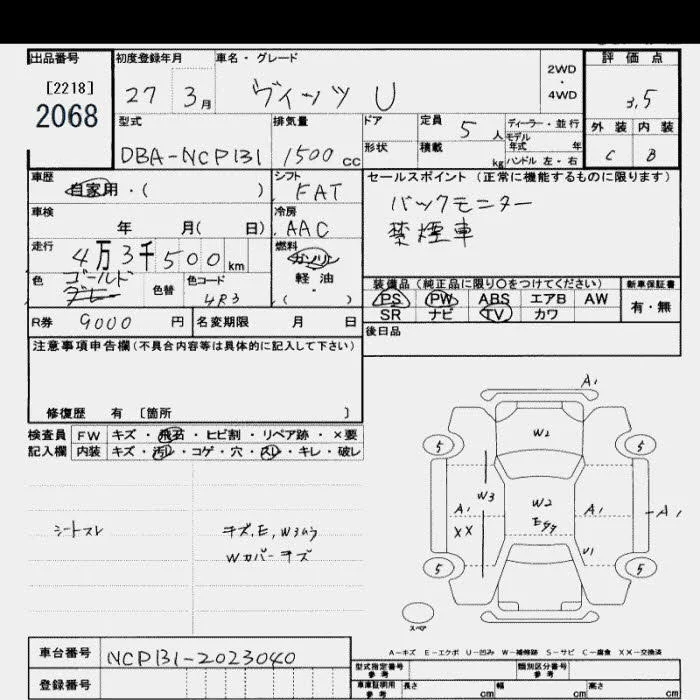 出品番号 初度登録年月 車名・グレード 評価点
[2218]
2068
27 3月 ヴィッツ U
2WD
・
4WD
3.5
型式 排気量 ドア 定員 5人 ディーラー・並行
モデル年式 年
外装 内装
DBA-NCP131 1500cc 形状 積載 kg ハンドル 左・右 C B
車歴 シフト セールスポイント(正常に機能するものに限ります)
自家用・( ) FAT バックモニター
車検 冷房 禁煙車
年 月( 日) AAC
走行 燃料
4万3千500km ガソリン
色 ゴールド 色替 色コード 軽油
グレー 4R3 ・( )
装備品(純正品に限り○をつけてください) 新車保証書
PS PW ABS エアB AW 有・無
SR ナビ TV カワ
R券 9000円 名変期限 月 日 後日品
注意事項申告欄(不具合内容等は具体的に記入して下さい)
修復歴 有 〔箇所 〕
検査員 FW キズ・飛石・ヒビ割・リペア跡・×要
記入欄 内装 キズ・汚れ・コゲ・穴・スレ・キレ・破レ
シートスレ キズ、E、W3ムラ
Wカバーキズ
A1
W2
5 5
W3 W2
A1 A1 -A1
XX
U1
5 5
スペア
A-キズ E-エクボ U-凹み W-補修跡 S-サビ C-腐食 XX-交換済
車台番号 NCP131-2023040
型式指定番号 参考 類別区分番号 参考
登録番号 車庫証明用 参考 長さ cm 幅 cm 高さ cm